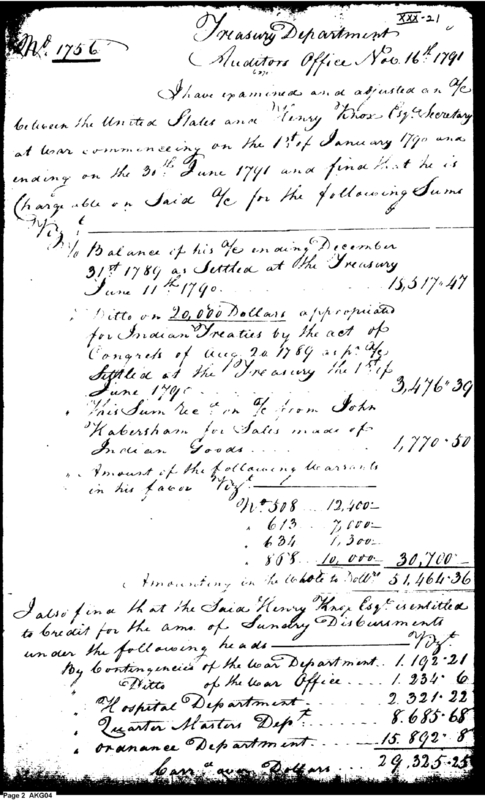 XXX-21
Treasury Department
No. 1756
Auditors Office Nov. 16th 1791
I have examined and adjusted an a/c
between the United States and Henry Knox Esqr. Secretary
at War commencing on the 1st of January 1790 and
ending on the 31st June 1791 and find that he is
Chargeable on Said a/c for the following Sums
Vizt
To Balance of his a/c ending December
31st 1789 as Settled at the Treasury
June 11th 1790 15,517.47
Ditto on 20,000 Dollars appropriated
for Indian Treaties by the act of
Congress of Aug. 20 1789 as pr. a/c
Settled at the Treasury the 1st of
June 1790 3,476.39
This Sum recd. on a/c from John
Habersham for Sales made of
Indian Goods 1,770.50
Amount of the following Warrants
in his favor Vizt.
No. 508 12,400
" 613 7,000
" 634 1,300
" 868 10,000 30,700
Amounting in the whole to Dollrs. 51,464.36
I also find that the Said Henry Knox Esqr. is entitled
to Credit for the amo. of Sundry Disbursments
under the following heads Vizt.
By Contingencies of the War Department 1.192.21
" Ditto of the War Office 1.234.6
" Hospital Department 2.321.22
" Quarter Masters Dept. 8.685.68
" Ordnance Department 15.892.8
Carrd. over Dollars 29,325.25
Page 2 AKG04